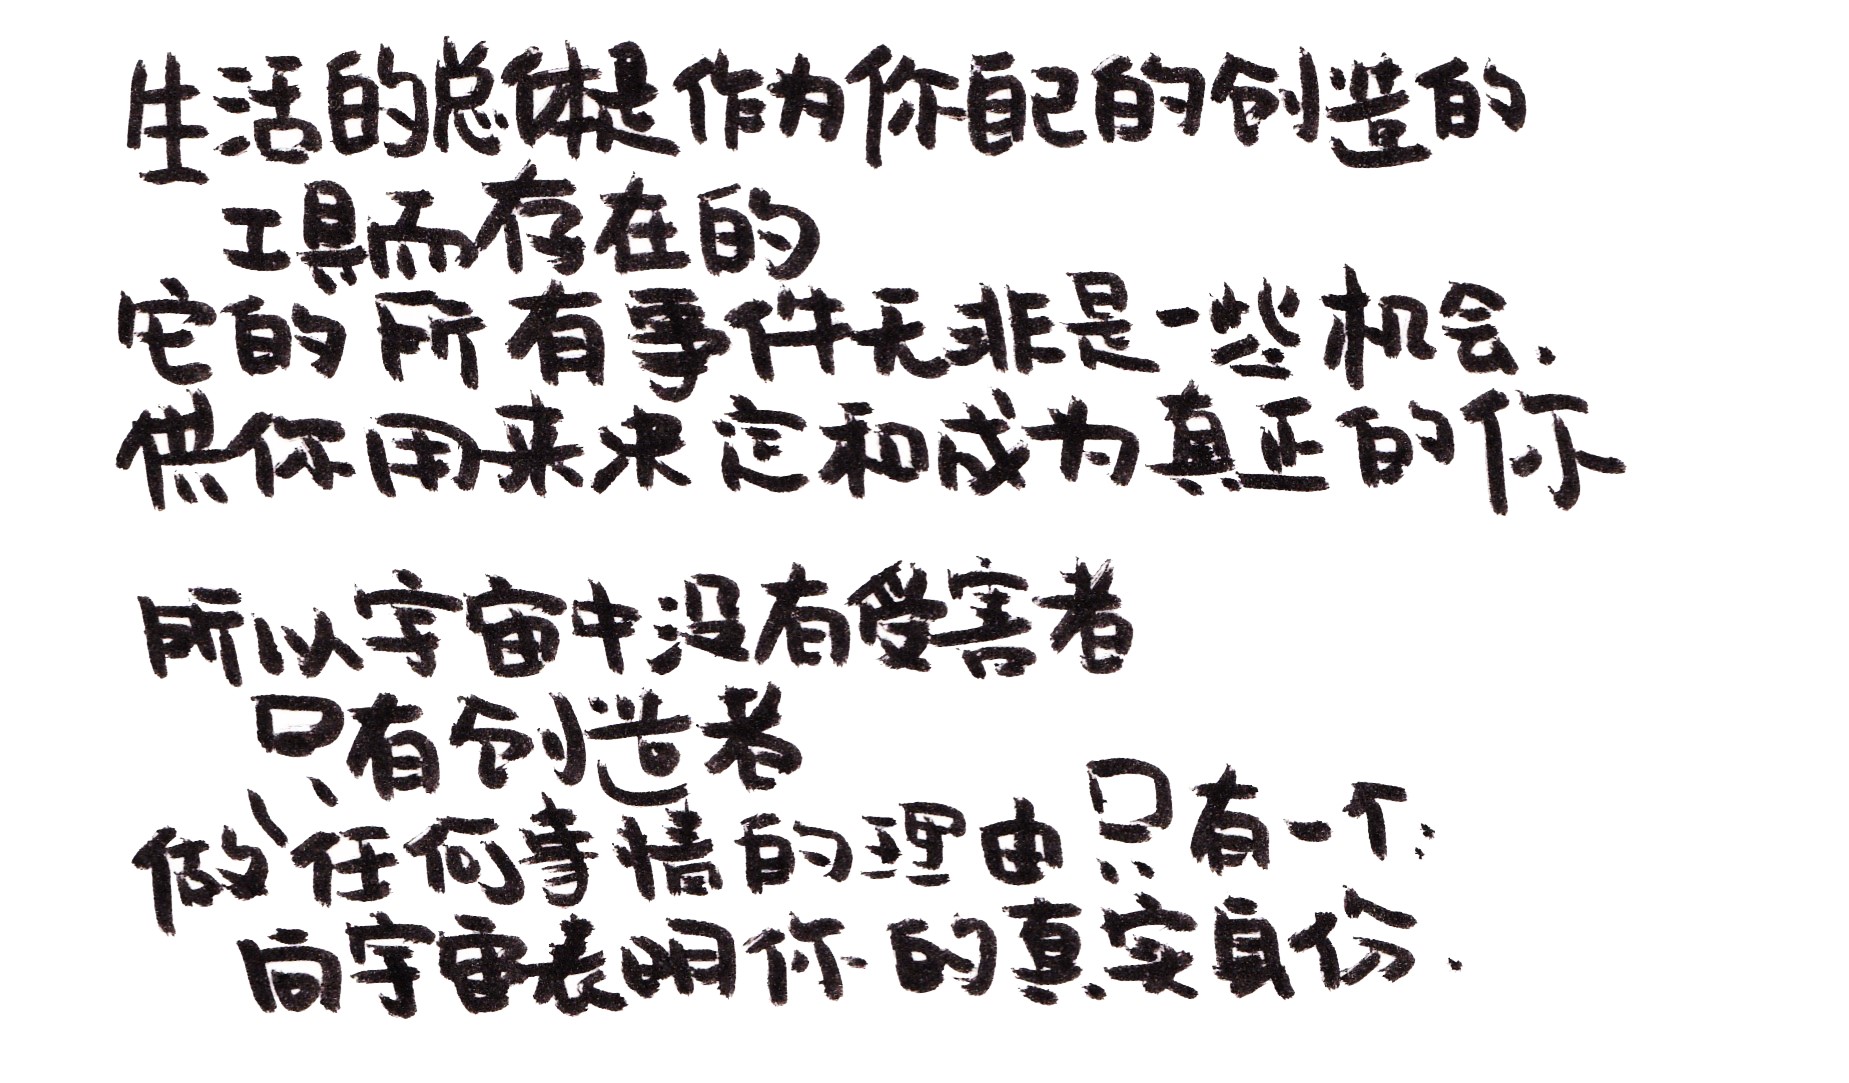 生活的总体是作为你自己的创造的
工具而存在的
它的所有事件无非是一些机会.
供你用来决定和成为真正的你
所以宇宙中没有受害者
只有创造者
做任何事情的理由只有一个:
向宇宙表明你的真实身份.